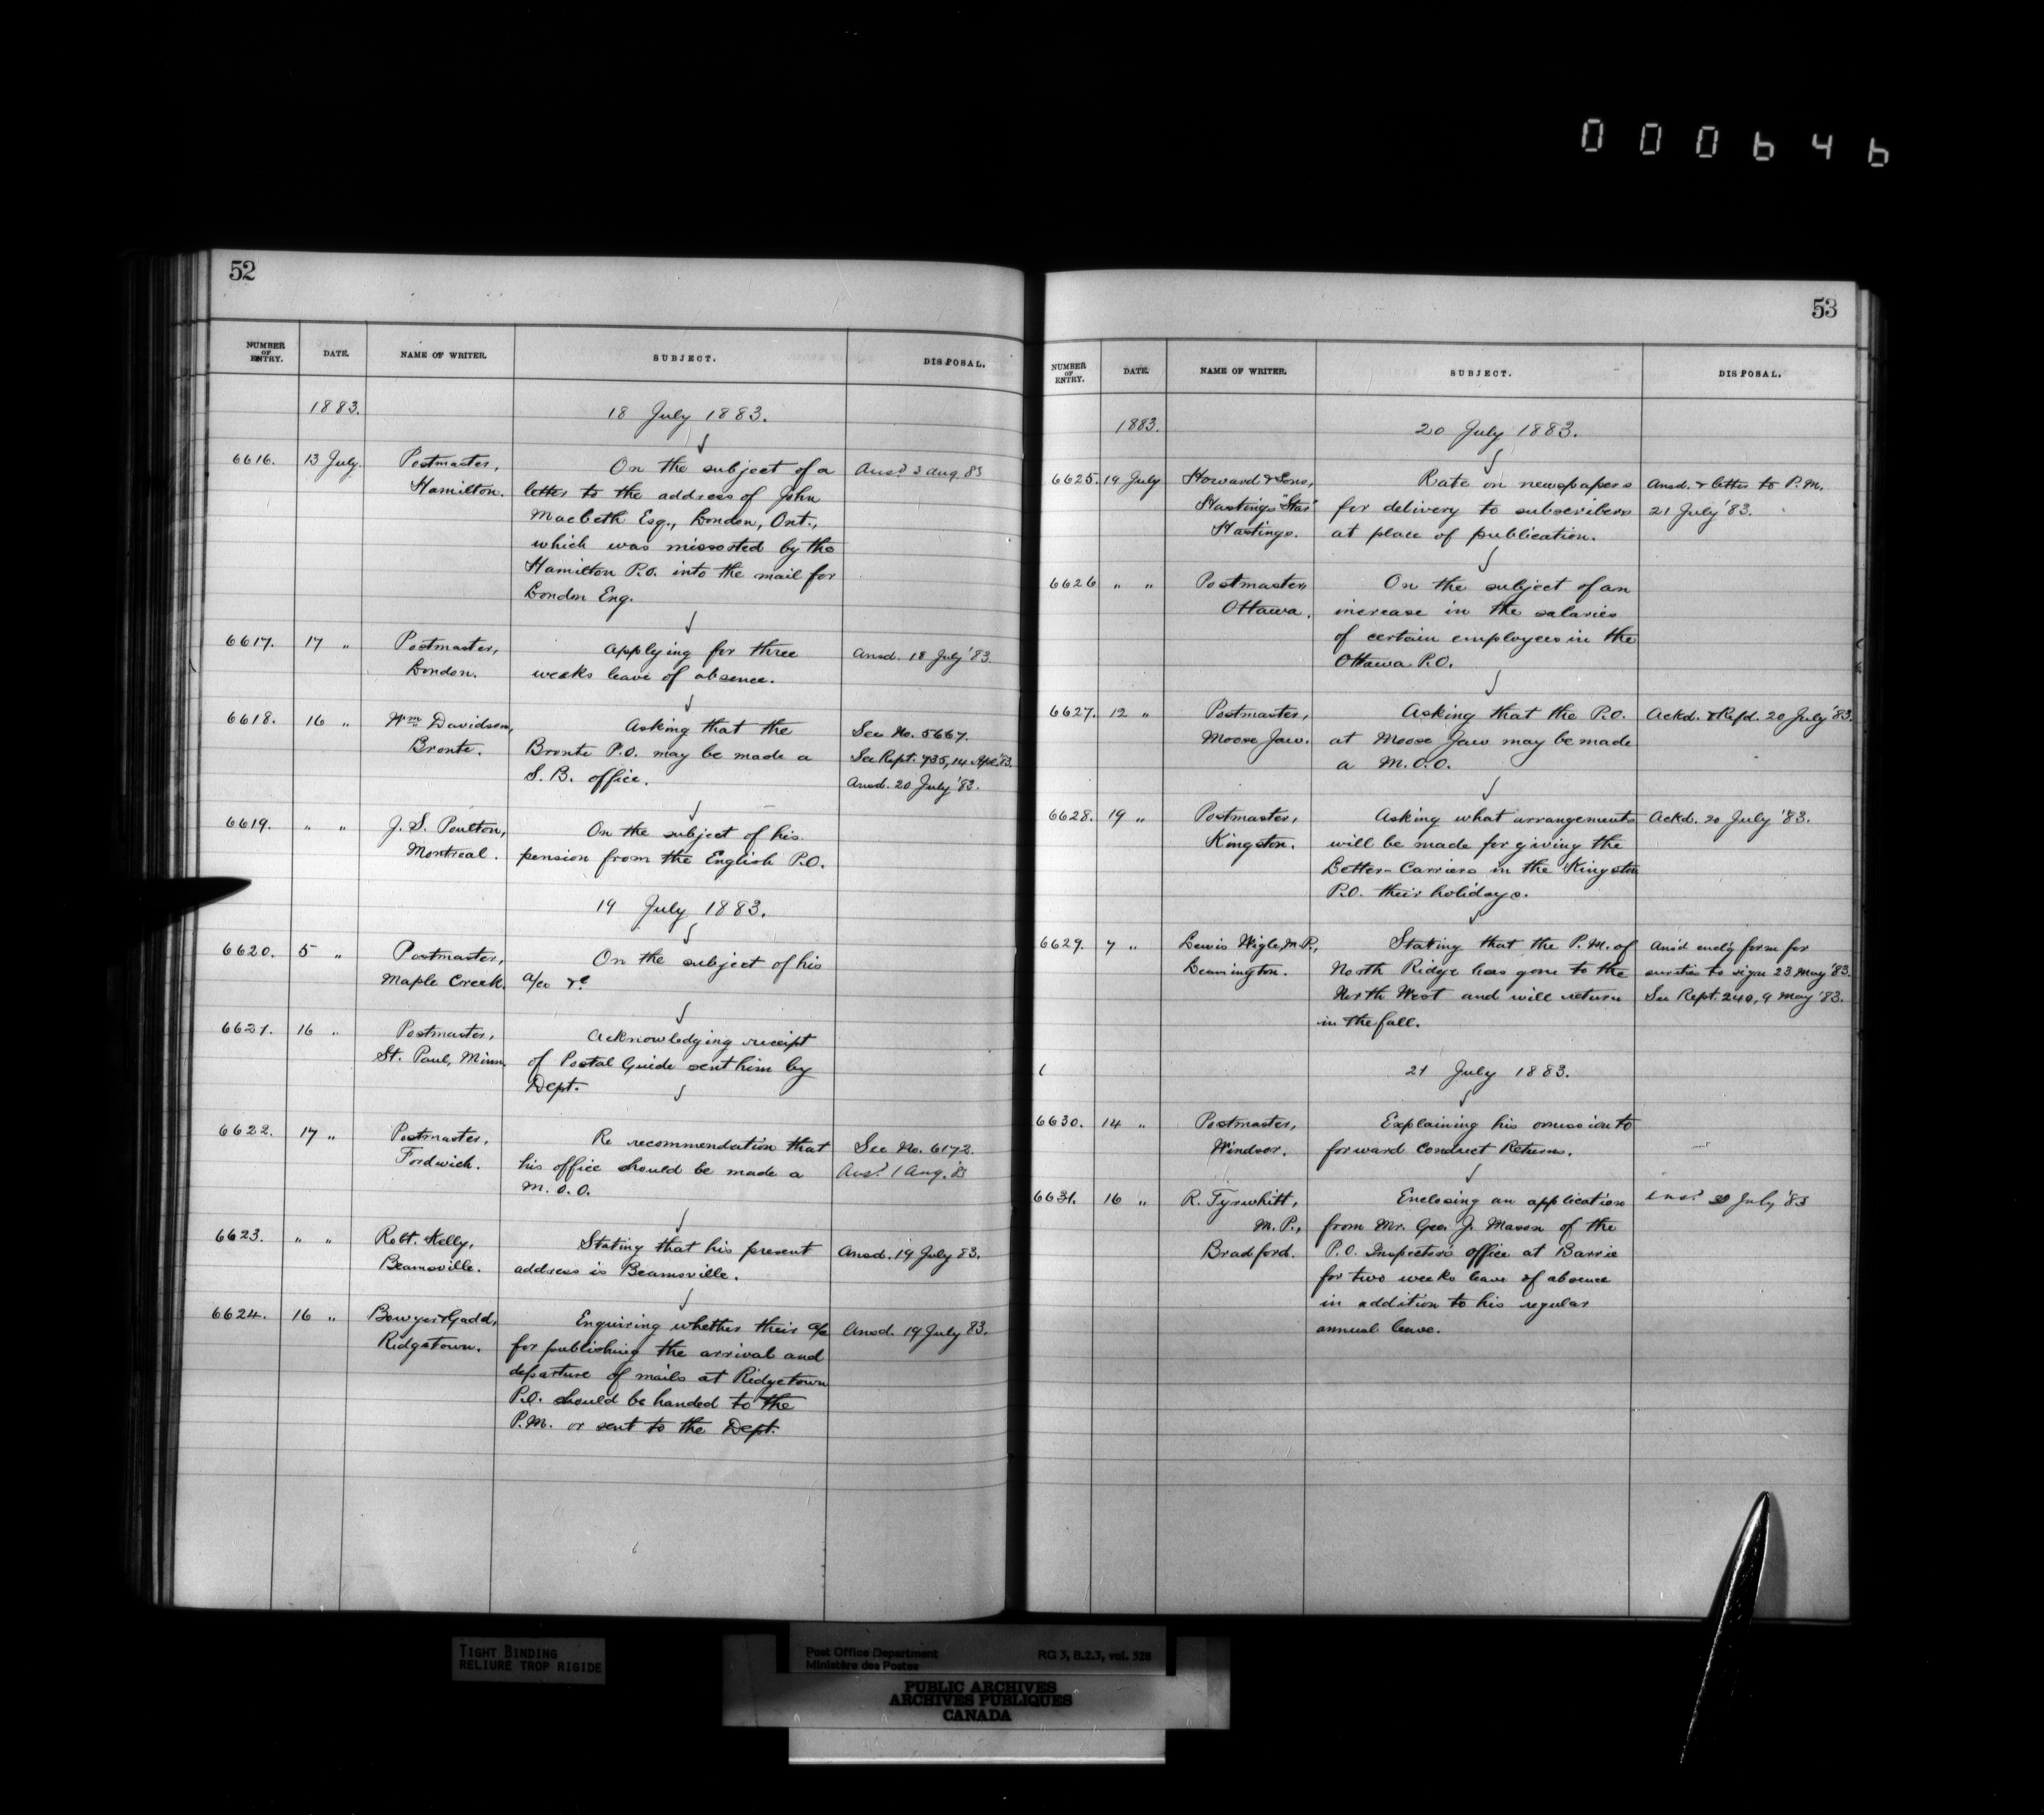 000646
52
NUMBER OF ENTRY. DATE. NAME OF WRITER. SUBJECT. DISPOSAL.
1883. 18 July 1883.
6616. 13 July. Postmaster, On the subject of a Ansd 3 Aug 83
Hamilton. letter to the address of John
Macbeth Esq., London, Ont.,
which was missorted by the
Hamilton P.O. into the mail for
London Eng.
6617. 17 " Postmaster, Applying for three Ansd. 18 July '83.
London. weeks leave of absence.
6618. 16 " Wm Davidson, Asking that the See No. 5667.
Bronte. Bronte P.O. may be made a See Rept. 735, 14 Apl '83.
S. B. office. Ansd. 20 July '83.
6619. " " J. S. Poulton, On the subject of his
Montreal. pension from the English P.O.
19 July 1883.
6620. 5 " Postmaster, On the subject of his
Maple Creek. a/cs &c
6621. 16 " Postmaster, Acknowledging receipt
St. Paul, Minn. of Postal Guide sent him by
Dept.
6622. 17 " Postmaster, Re recommendation that See No. 6172.
Fordwich. his office should be made a Ansd 1 Aug. 83
M. O. O.
6623. " " Robt. Kelly, Stating that his present Ansd. 19 July 83.
Beamsville. address is Beamsville.
6624. 16 " Bowyer & Gadd, Enquiring whether their a/c Ansd. 19 July 83.
Ridgetown. for publishing the arrival and
departure of mails at Ridgetown
P.O. should be handed to the
P.M. or sent to the Dept.
53
NUMBER OF ENTRY. DATE. NAME OF WRITER. SUBJECT. DISPOSAL.
1883. 20 July 1883.
6625. 19 July Howard & Sons, Rate on newspapers Ansd. & letter to P.M.
Hastings "Star" for delivery to subscribers 21 July '83.
Hastings. at place of publication.
6626 " " Postmaster, On the subject of an
Ottawa. increase in the salaries
of certain employees in the
Ottawa P.O.
6627. 12 " Postmaster, Asking that the P.O. Ackd. & Refd. 20 July '83.
Moose Jaw. at Moose Jaw may be made
a M.O.O.
6628. 19 " Postmaster, Asking what arrangements Ackd. 20 July '83.
Kingston. will be made for giving the
Letter-Carriers in the Kingston
P.O. their holidays.
6629. 7 " Lewis Wigle, M.P., Stating that the P.M. of Ansd encl'g form for
Leamington. North Ridge has gone to the sureties to sign 23 May '83.
North West and will return See Rept. 240, 9 May '83.
in the fall.
21 July 1883.
6630. 14 " Postmaster, Explaining his omission to
Windsor. forward Conduct Returns.
6631. 16 " R. Tyrwhitt, Enclosing an application Ansd 30 July '83
M. P., from Mr. Geo. J. Mason of the
Bradford. P.O. Inspector's office at Barrie
for two weeks leave of absence
in addition to his regular
annual leave.
TIGHT BINDING
RELIURE TROP RIGIDE
Post Office Department RG 3, B.2.3, vol. 528
Ministère des Postes
PUBLIC ARCHIVES
ARCHIVES PUBLIQUES
CANADA